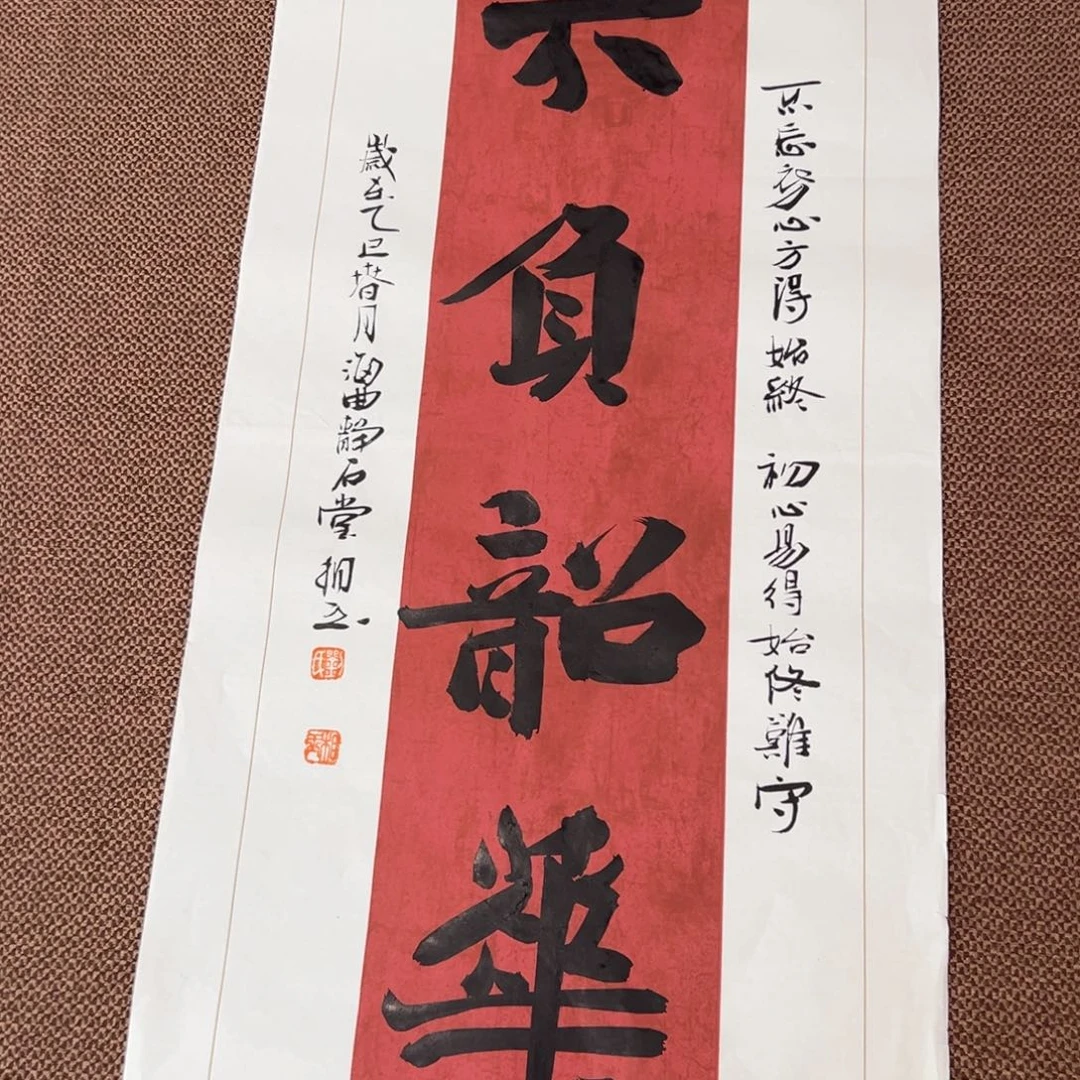 不忘初心方得始終 初心易得始終難守
不負韶華
歲在乙巳榴月海曲靜石堂